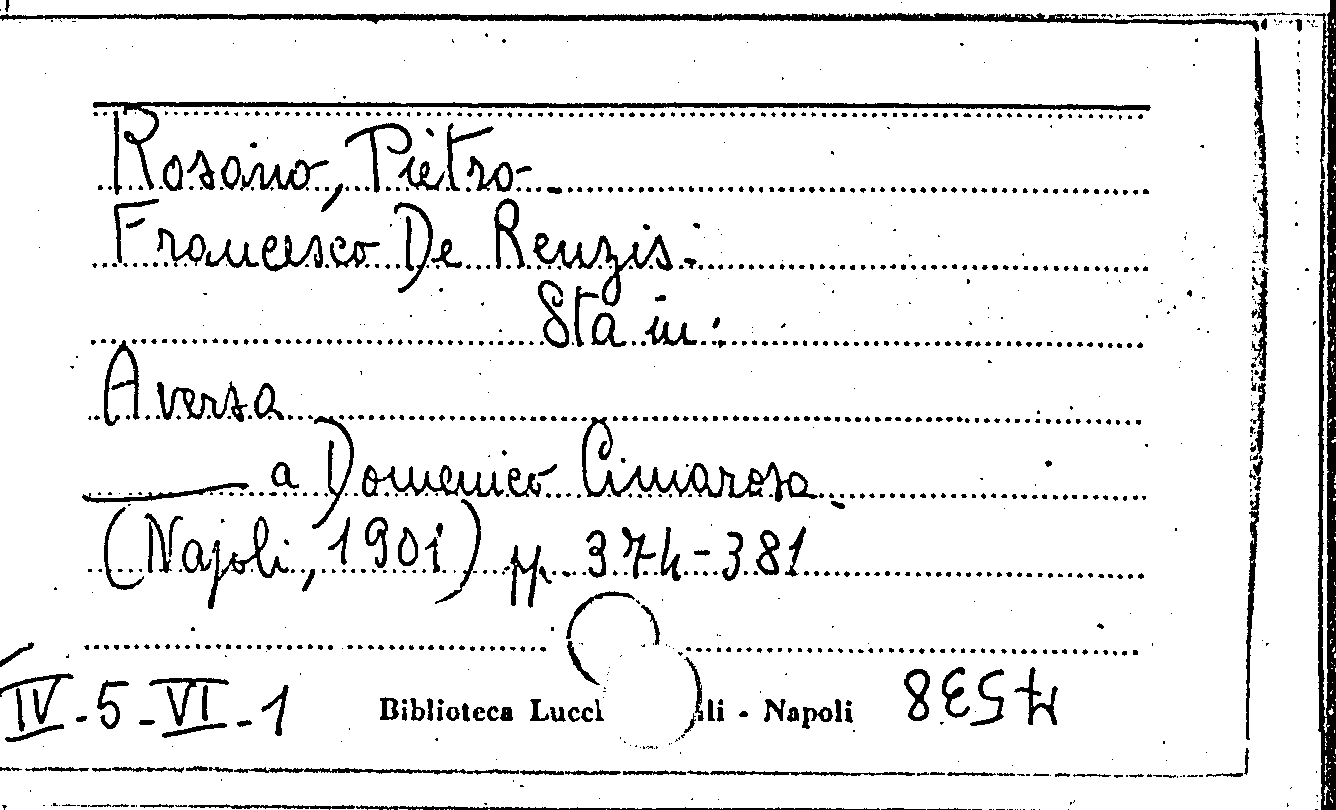 Rosano, Pietro.
Francesco De Renzis.
Sta in:
Aversa
——— a Domenico Cimarosa.
(Napoli, 1901) pp. 374-381
IV-5-VI-1 Biblioteca - Napoli